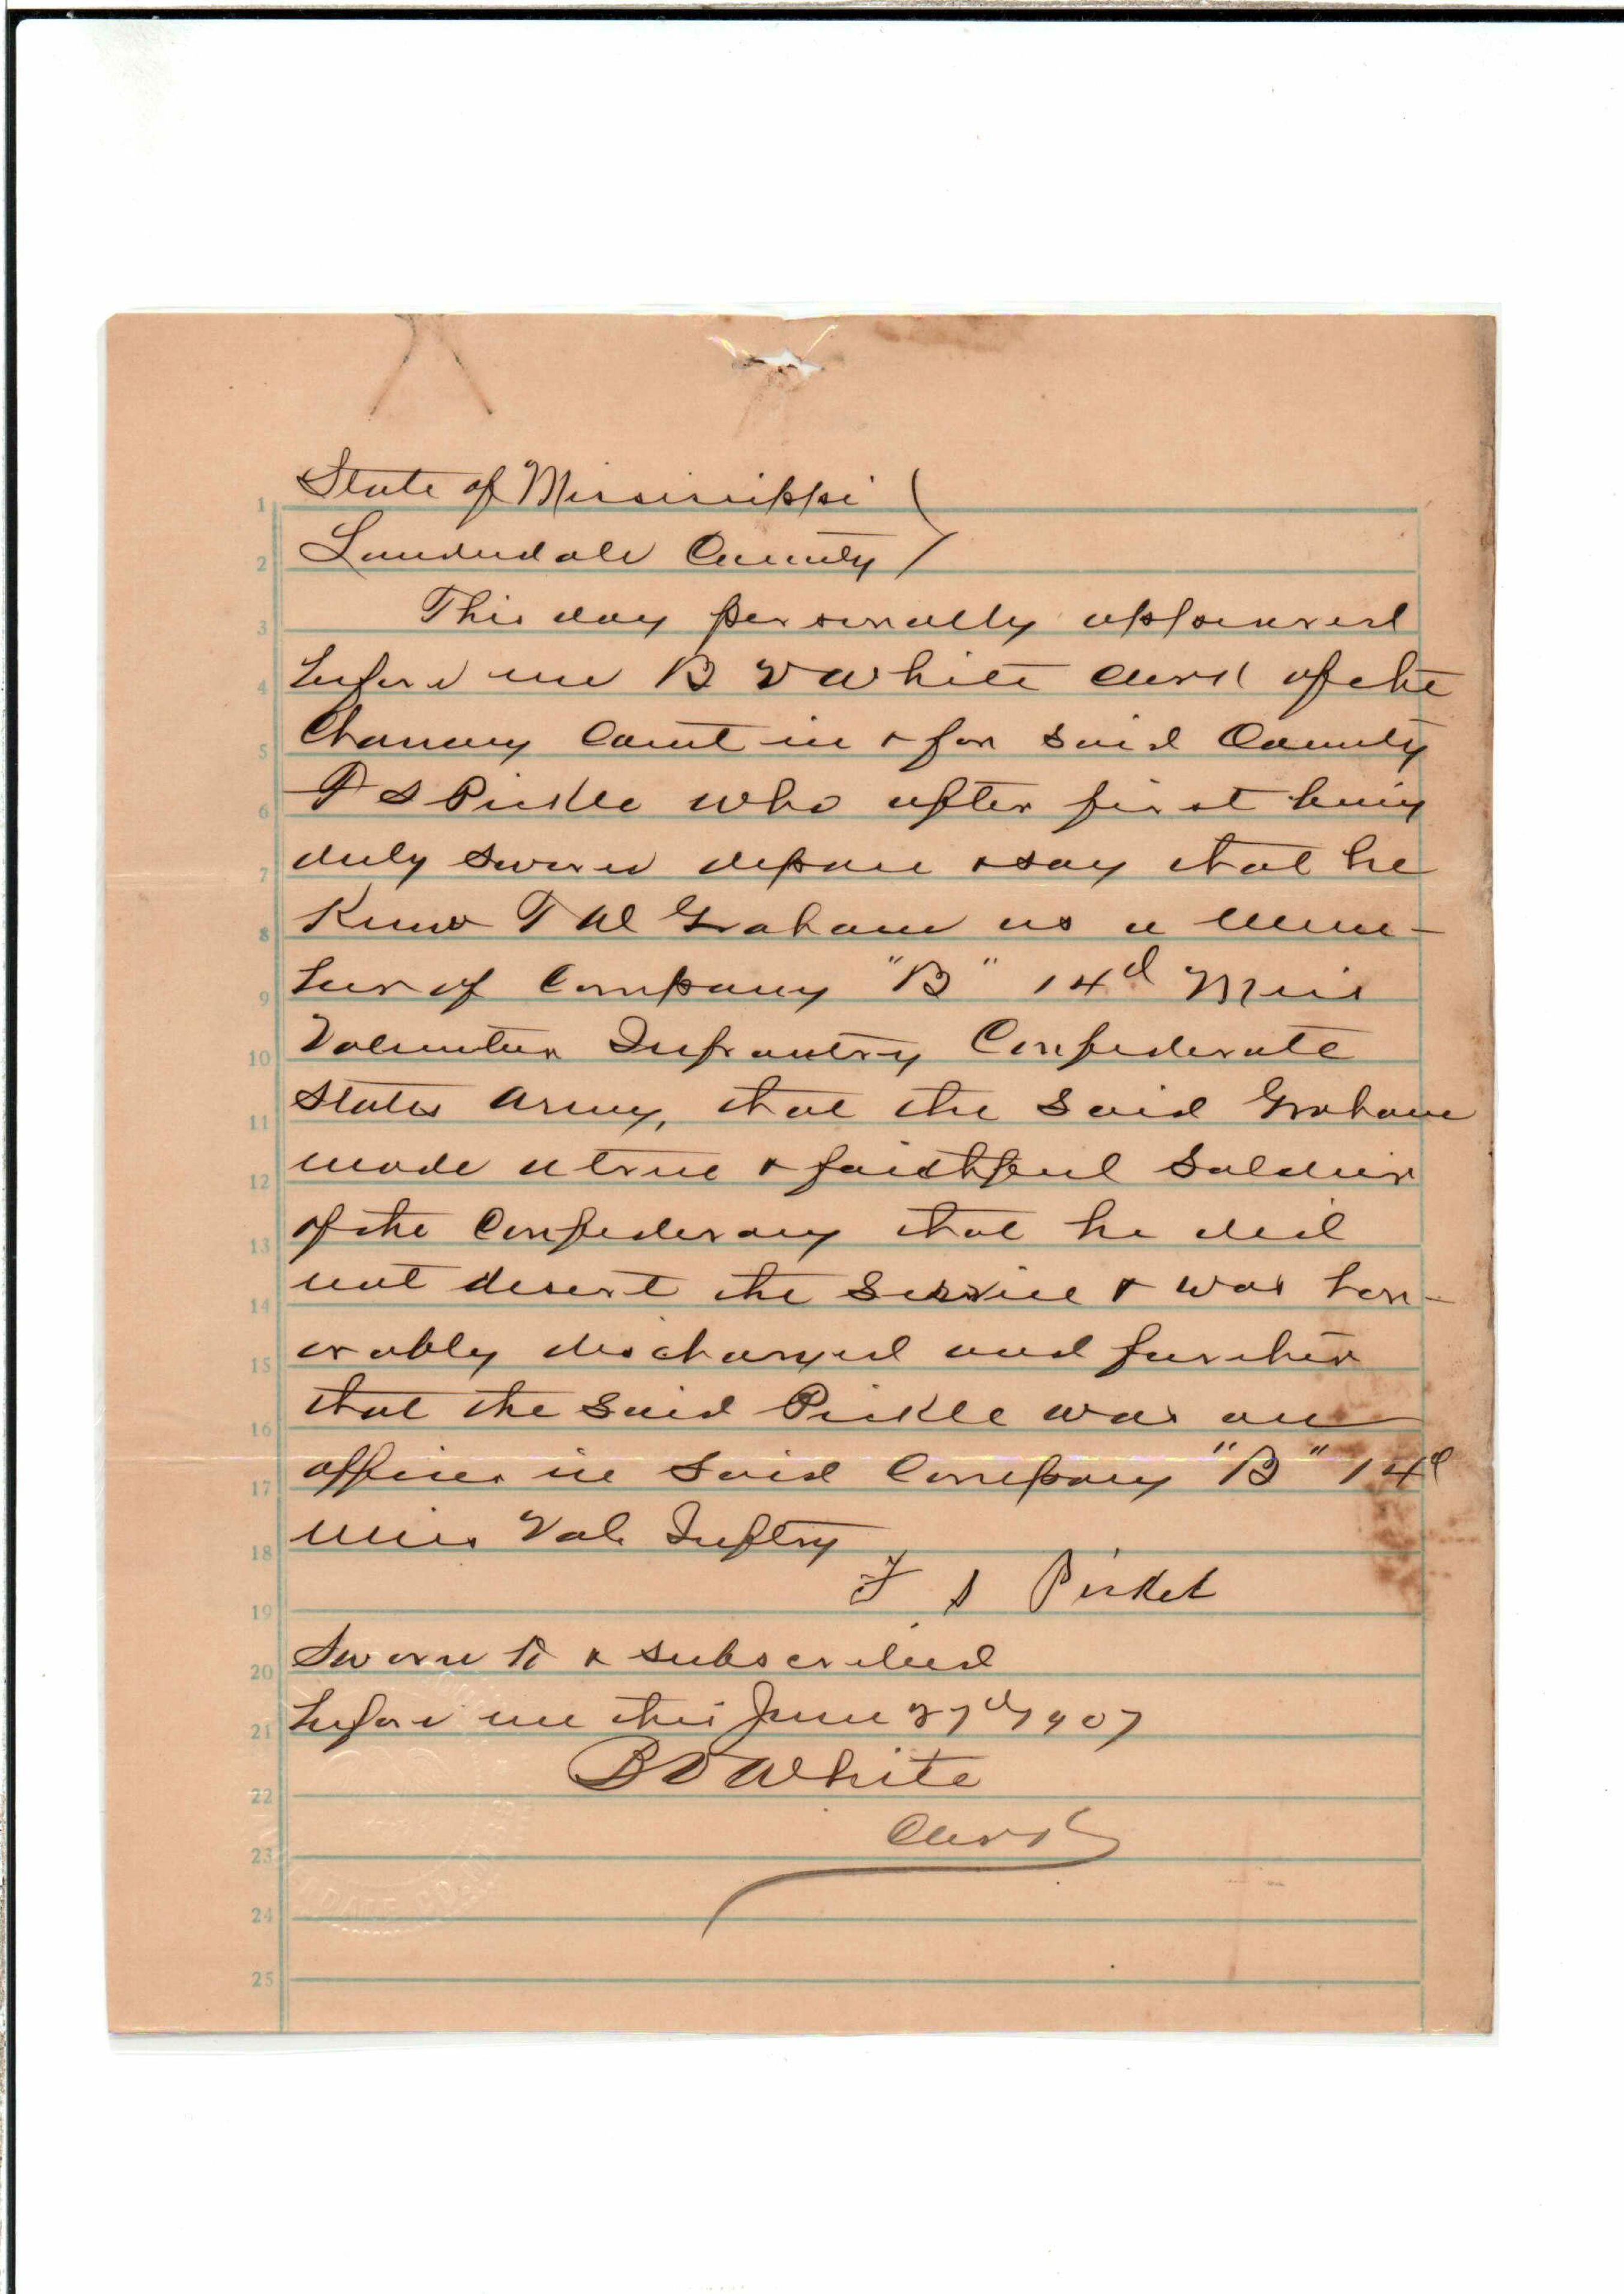 State of Mississippi (
Lauderdale County )
1
2
3
4
5
6
7
8
9
10
11
12
13
14
15
16
17
18
19
20
21
22
23
24
25
This day personally appeared
before me B V White Clerk of the
Chancery Court in & for said County
F S Pickle who after first being
duly sworn depose & say that he
Knew T W Graham as a mem-
ber of Company "B" 14d Miss
Volunteer Infantry Confederate
States Army, that the said Graham
made a true & faithful Soldier
of the Confederacy that he did
not desert the Service & was hon-
orably discharged and further
that the said Pickle was an
officer in said Company "B" 14d
Miss Vol. Inftry
F S Pickel
Sworn to & subscribed
before me this June 27th 1907
B V White
Clerk